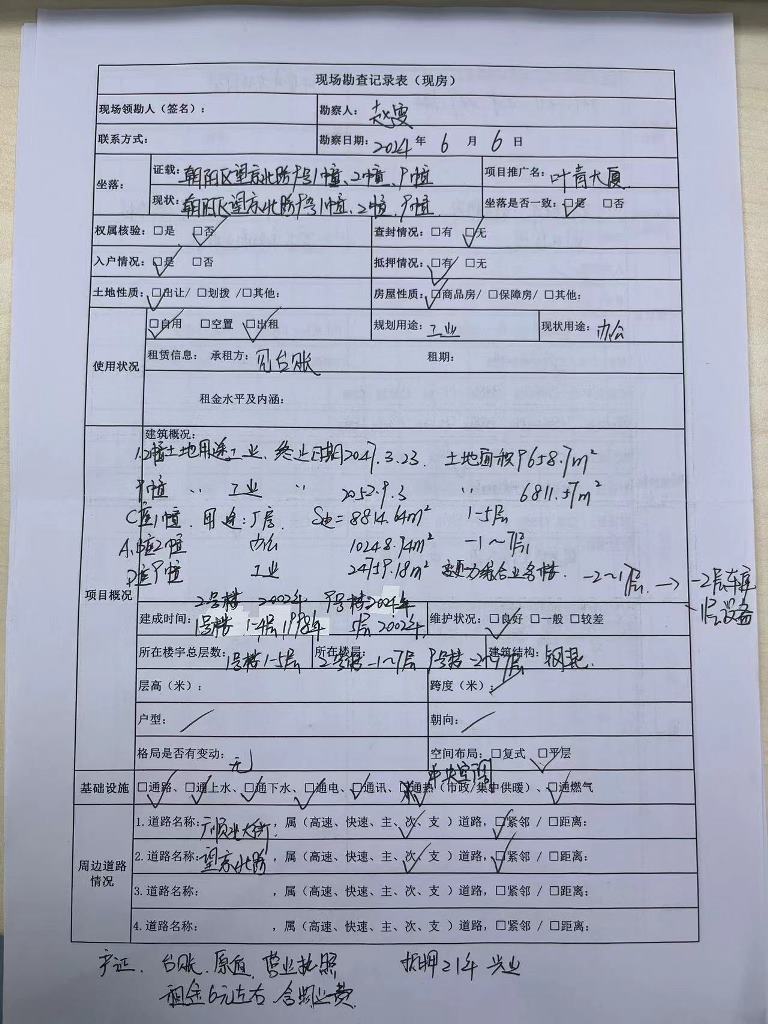 现场勘查记录表（现房）
现场领勘人（签名）： 勘察人：
联系方式： 勘察日期：2024 年 6 月 6 日
坐落： 证载：朝阳区望京北路9号1幢、2幢、9幢 项目推广名：叶青大厦
现状：朝阳区望京北路9号1幢、2幢、9幢 坐落是否一致：☑是 □否
权属核验：□是 ☑否 查封情况：□有 ☑无
入户情况：☑是 □否 抵押情况：☑有 □无
土地性质：☑出让/ □划拨 /□其他： 房屋性质：☑商品房/ □保障房/ □其他：
使用状况 ☑自用 □空置 ☑出租 规划用途：工业 现状用途：办公
租赁信息： 承租方：见台账 租期：
租金水平及内涵：
项目概况 建筑概况：
1.2幢土地用途工业 终止日期2047.3.23. 土地面积9658.7m²
9幢 〃 工业 〃 2052.9.3 〃 6811.57m²
C座1幢. 用途:厂房. S建=8814.64m² 1-5层
A.B座2幢 办公 10248.74m² -1~7层
D座9幢 工业 24759.18m² 综合业务楼 -2~17层 → -2层车库
-1层设备
2号楼 2002年 9号楼2021年
建成时间：1号楼 1-4层1998年 5层2002年. 维护状况：☑良好 □一般 □较差
所在楼宇总层数：1号楼1-5层 所在楼层：2号楼-1~7层 9号楼-2~17层 建筑结构：钢混.
层高（米）： 跨度（米）：
户型： 朝向：
格局是否有变动：无 空间布局：□复式 ☑平层
中央空调
基础设施 ☑通路、☑通上水、☑通下水、☑通电、☑通讯、☑通热（市政/集中供暖）、☑通燃气
周边道路情况 1.道路名称：广顺北大街，属（高速、快速、主、次、支）道路，☑紧邻 / □距离：
2.道路名称：望京北路，属（高速、快速、主、次、支）道路，☑紧邻 / □距离：
3.道路名称： ，属（高速、快速、主、次、支）道路，□紧邻 / □距离：
4.道路名称： ，属（高速、快速、主、次、支）道路，□紧邻 / □距离：
产证. 台账. 原值. 营业执照 抵押21年 兴业
租金6元左右 含物业费